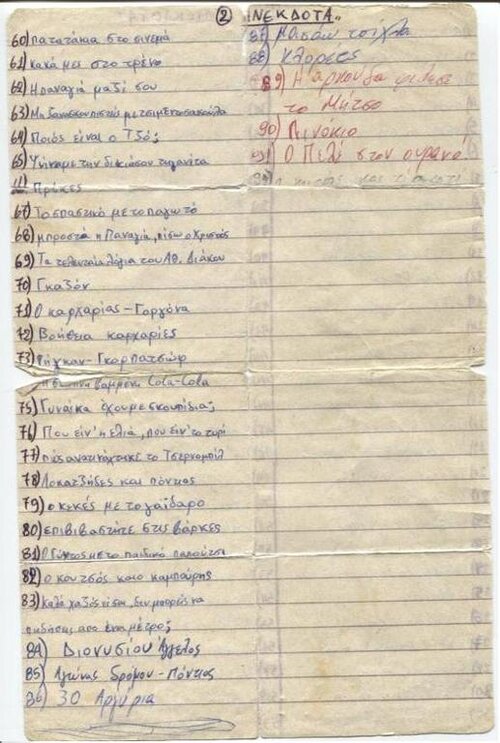 ② ΑΝΕΚΔΟΤΑ..
60) Πατατάκια στο σινεμά
61) Κακά μες στο τρένο
62) Η παναγιά μαζί σου
63) Μα ξανασκουπιστείς με τσιμεντοσακούλα
64) Ποιός είναι ο Τζο;
65) Ψήναμε την δικιά σου τηγανίτα
Πρέκες
67) Το σπαστικό με το παγωτό
68) μπροστά η Παναγία, πίσω ο Χριστός
69) Τα τελευταία λόγια του Αθ. Διάκου
70) Γκαζόν
71) Ο καρχαρίας - Γοργόνα
72) Βοήθεια καρχαρίες
73) Ρήγκαν - Γκορπατσώφ
βαμμένη Cola-Cola
75) Γυναίκα έχουμε σκουπίδια;
76) Που είν' η ελιά, που είν' το τυρί
77) πώς ανατινάχτηκε το Τσερνομπίλ
78) Λοκατζήδες και πόντιος
79) ο κοκός με το γαϊδαρο
80) επιβιβαστήτε στις βάρκες
81) με το παιδικό παπούτσι
82) ο κουτσός και ο καμπούρης
83) Καλά χαζός είσαι, δεν μπορείς να
πηδήσεις απο ένα μέτρο;
84) Διονυσίου Άγγελος
85) Αγώνας δρόμου - Πόντιος
86) 30 Αργύρια
87) Μπισαν τσίχλα
88) Κλαρέος
89) Η αρκούδα
το Μήτσο
90) Πινόκιο
91) Ο Πελέ στον ουρανό